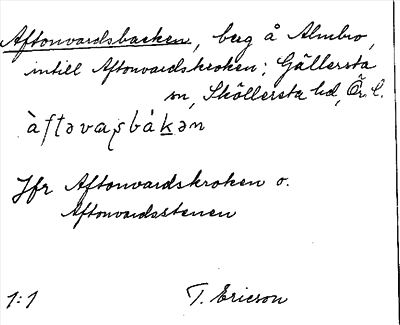 Aftonvardsbacken, berg å Almbro,
intill Aftonvardskroken; Gällersta
sn, Sköllersta hd, Ör. l.
àftǝvaʂbákǝn
Jfr Aftonvardskroken o.
Aftonvardsstenen
1:1 T. Ericson